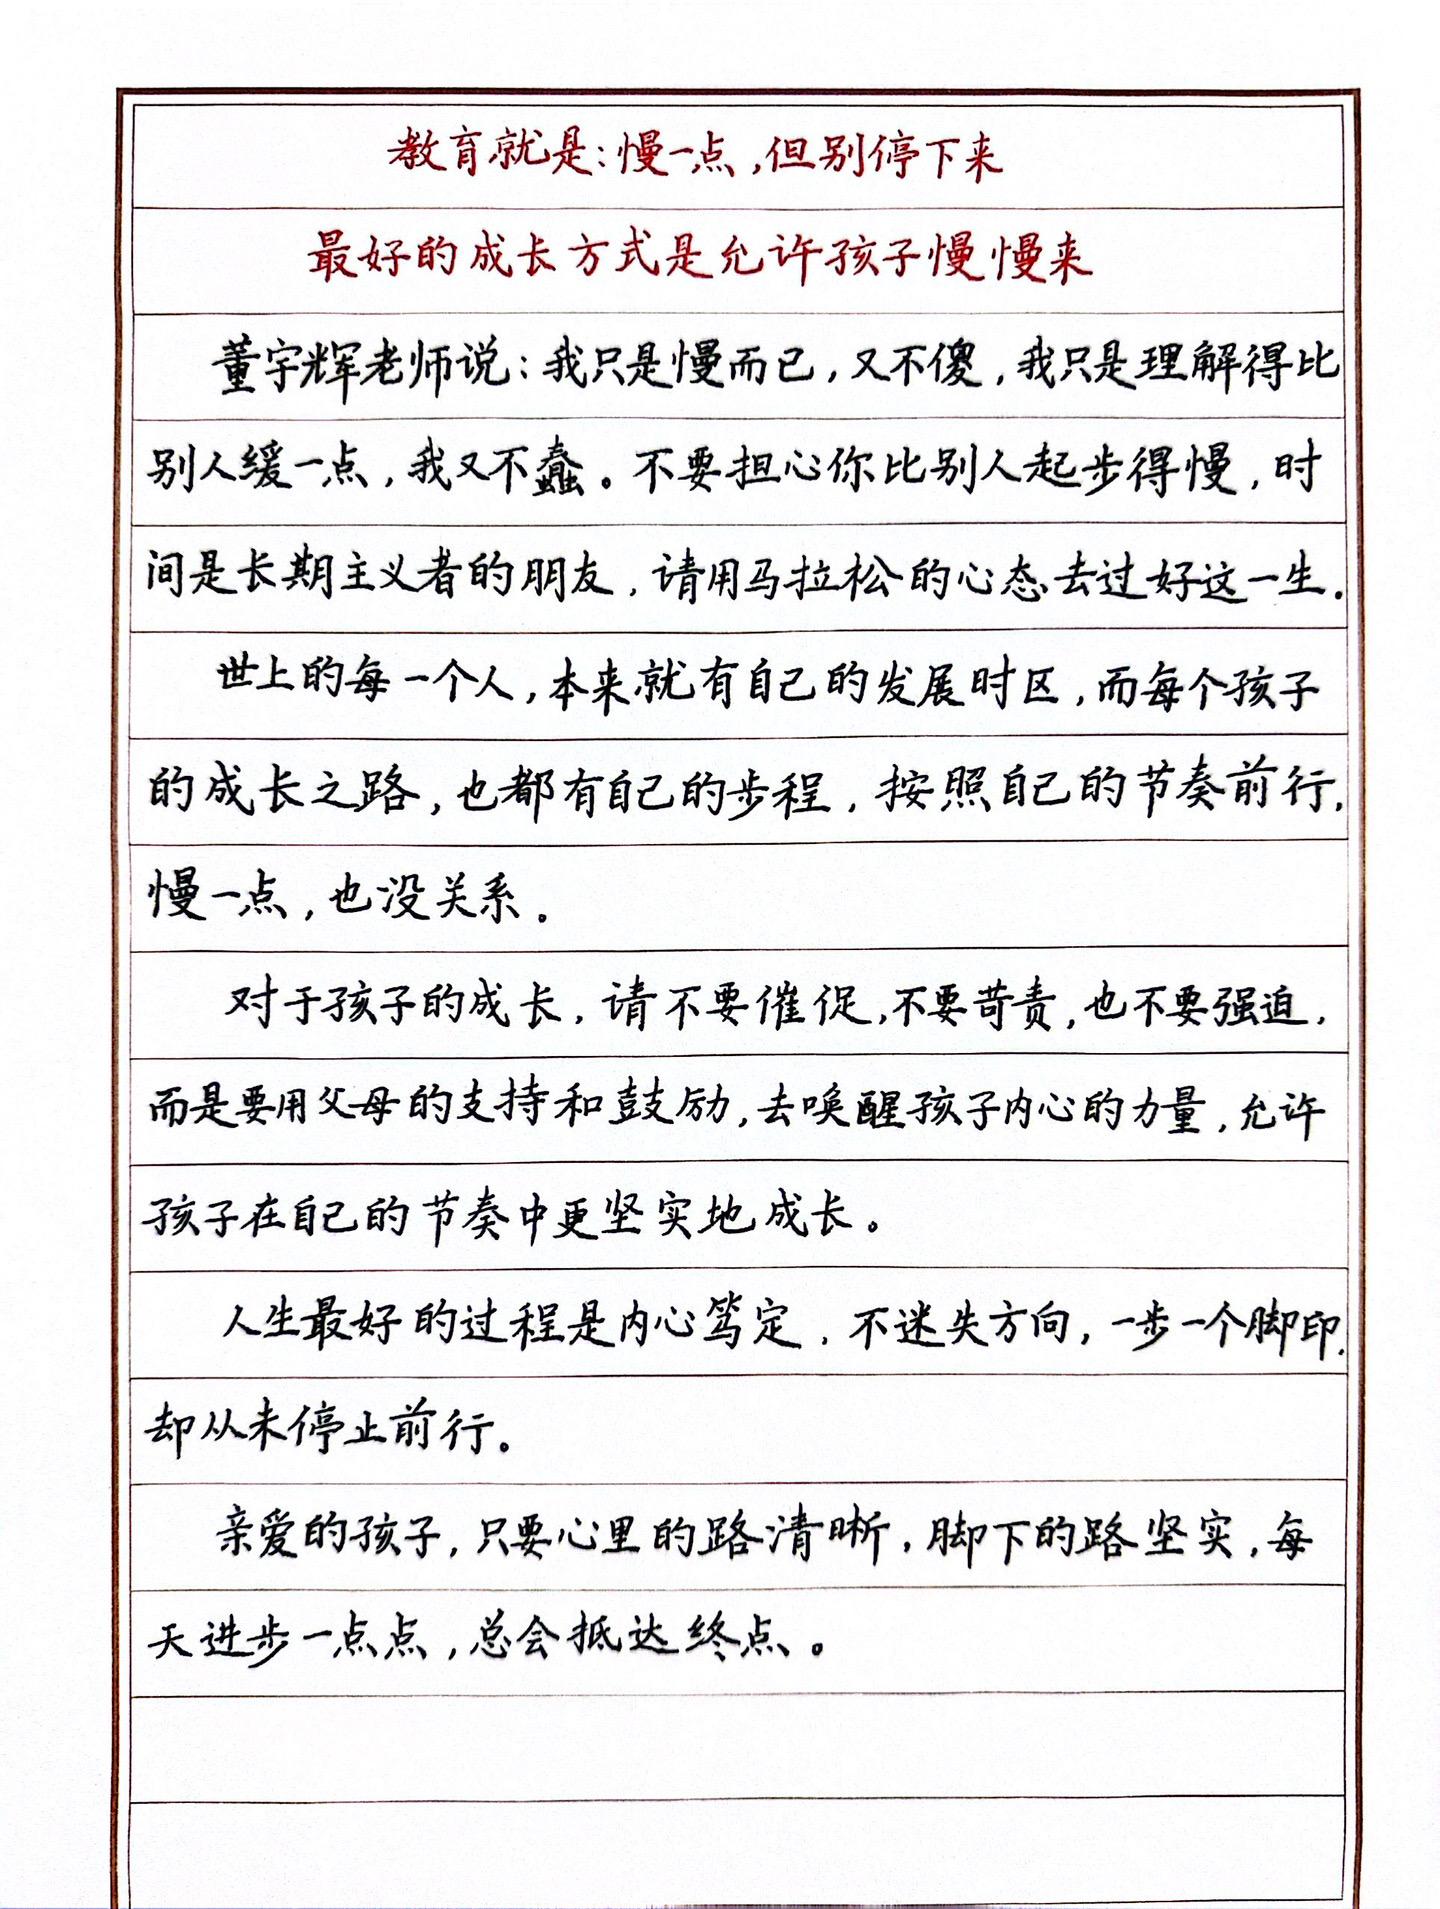 教育就是:慢一点,但别停下来
最好的成长方式是允许孩子慢慢来
董宇辉老师说:我只是慢而已,又不傻,我只是理解得比
别人缓一点,我又不蠢。不要担心你比别人起步得慢,时
间是长期主义者的朋友,请用马拉松的心态去过好这一生.
世上的每一个人,本来就有自己的发展时区,而每个孩子
的成长之路,也都有自己的步程,按照自己的节奏前行,
慢一点,也没关系。
对于孩子的成长,请不要催促,不要苛责,也不要强迫,
而是要用父母的支持和鼓励,去唤醒孩子内心的力量,允许
孩子在自己的节奏中更坚实地成长。
人生最好的过程是内心笃定,不迷失方向,一步一个脚印,
却从未停止前行。
亲爱的孩子,只要心里的路清晰,脚下的路坚实,每
天进步一点点,总会抵达终点。